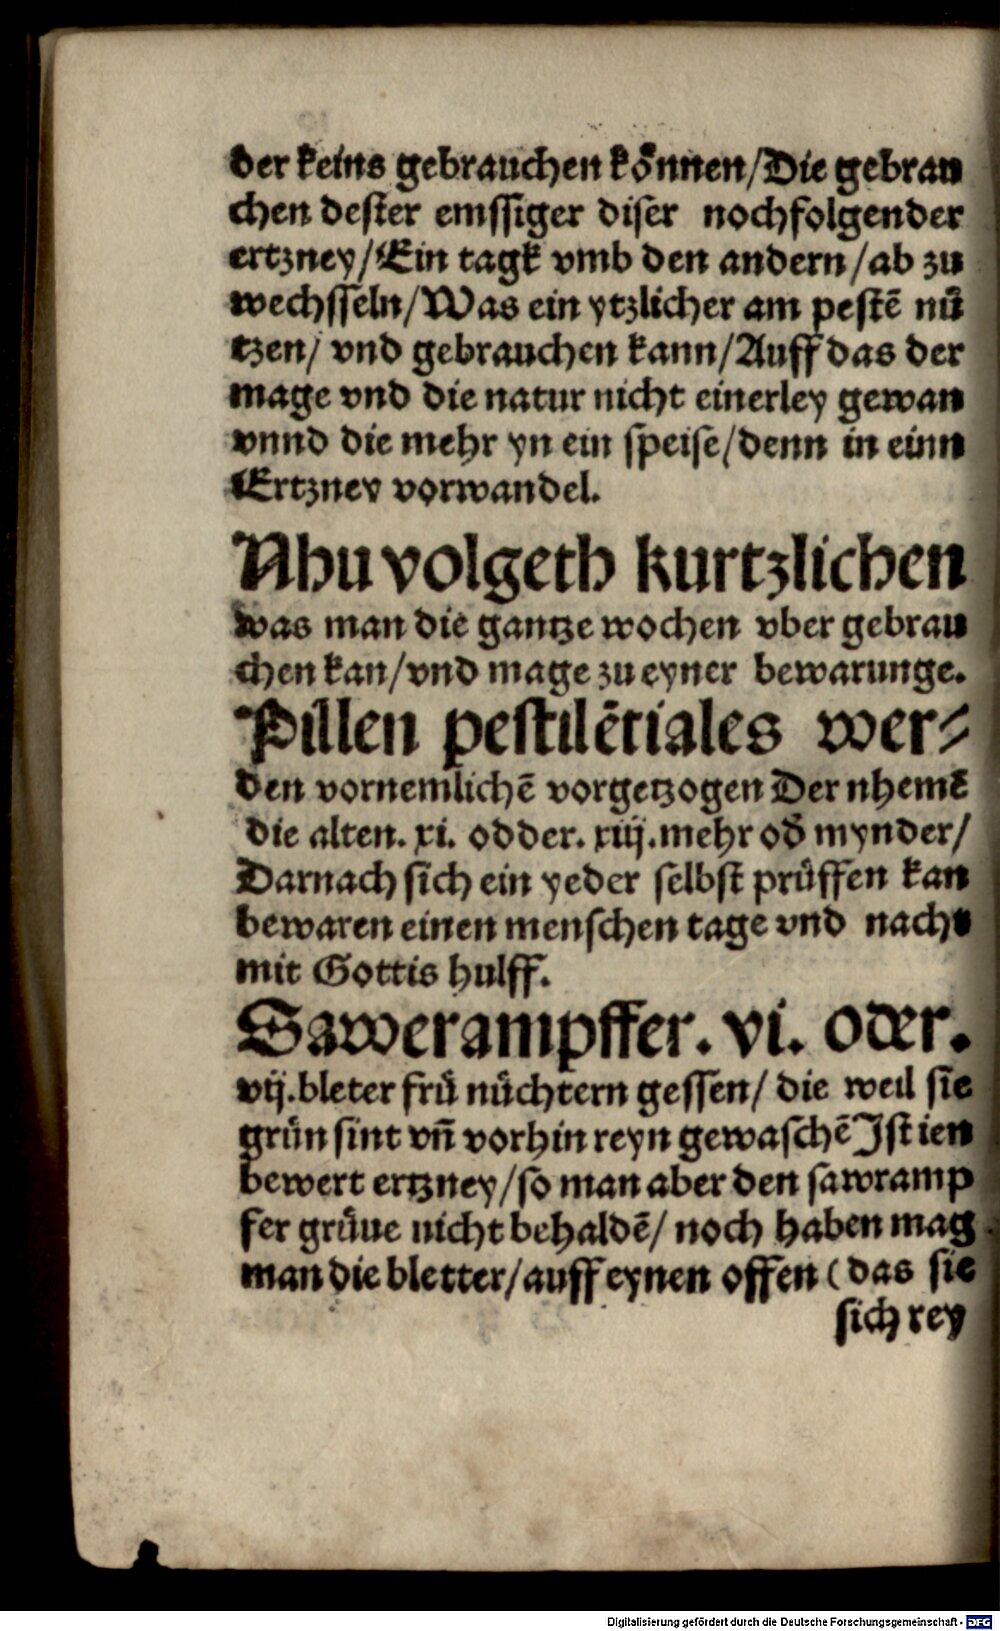 der keins gebrauchen koͤnnen/Die gebrau
chen dester emssiger diser nochfolgender
ertzney/Ein tagk vmb den andern/ab zu
wechsseln/Was ein ytzlicher am pestē nuͤ
tzen/ vnd gebrauchen kann/Auff das der
mage vnd die natur nicht einerley gewan
vnnd die mehr yn ein speise/denn in einn
Ertzney vorwandel.
Nhu volgeth kurtzlichen
was man die gantze wochen vber gebrau
chen kan/vnd mage zu eyner bewarunge.
Pillen pestilētiales wer⸗
den vornemlichē vorgetzogen Der nhemē
die alten. xi. odder. xiij.mehr od̄ mynder/
Darnach sich ein yeder selbst pruͤffen kan
bewaren einen menschen tage vnd nacht
mit Gottis hulff.
Sawerampffer. vi. oder.
vij.bleter fruͤ nuͤchtern gessen/ die weil sie
gruͤn sint vn̄ vorhin reyn gewaschē Ist ien
bewert ertzney/so man aber den sawramp
fer gruͤne nicht behaldē/ noch haben mag
man die bletter/auff eynen offen (das sie
sich rey
Digitalisierung gefördert durch die Deutsche Forschungsgemeinschaft - DFG